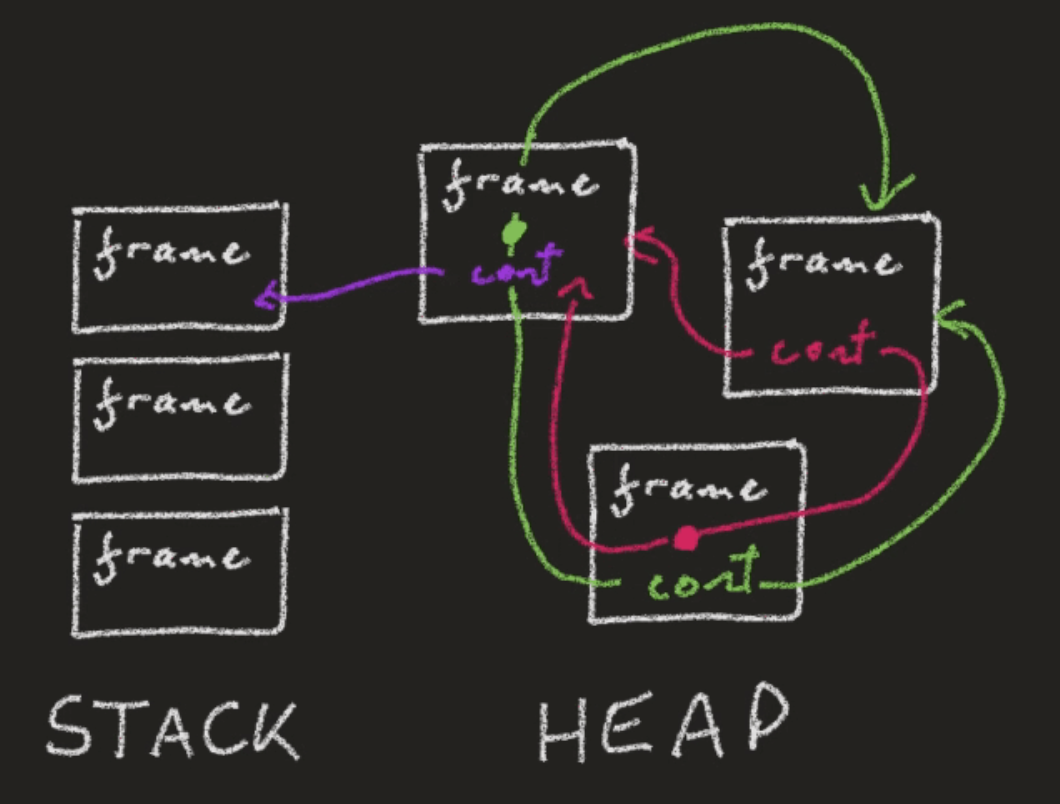 frame
frame
frame
STACK
frame
cont
frame
cont
frame
cont
HEAP